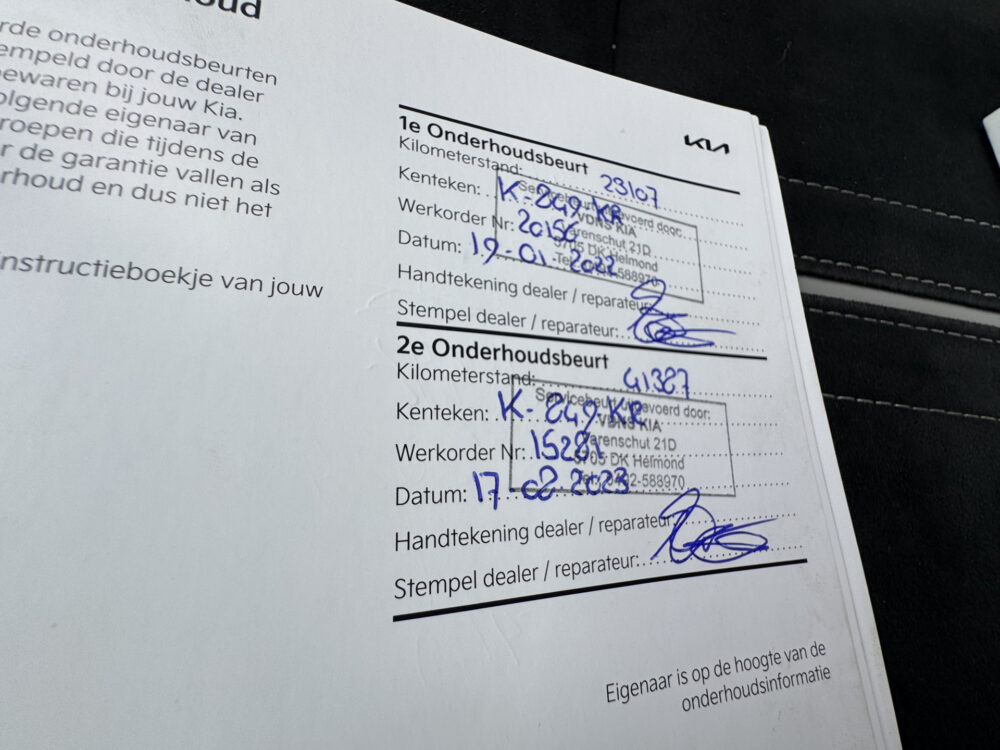 oud
rde onderhoudsbeurten
empeld door de dealer
ewaren bij jouw Kia.
olgende eigenaar van
roepen die tijdens de
r de garantie vallen als
rhoud en dus niet het
nstructieboekje van jouw
KIA
1e Onderhoudsbeurt
Kilometerstand: 23107
Kenteken: K-849-KR
Werkorder Nr: 20156
Datum: 19-01-2022
Handtekening dealer / reparateur:
Stempel dealer / reparateur:
Servicebeurt uitgevoerd door:
VDNS KIA
Varenschut 21D
5705 DK Helmond
Tel: 0492-588970
2e Onderhoudsbeurt
Kilometerstand: 41387
Kenteken: K-849-KR
Werkorder Nr: 15281
Datum: 17-02-2023
Handtekening dealer / reparateur:
Stempel dealer / reparateur:
Servicebeurt uitgevoerd door:
VDNS KIA
Varenschut 21D
5705 DK Helmond
Tel: 0492-588970
Eigenaar is op de hoogte van de
onderhoudsinformatie